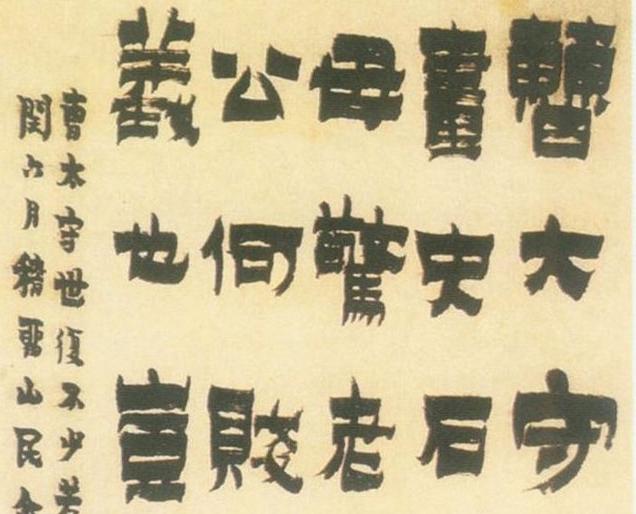 曹大守
畫史石
母驚老
公何賤
也豈
曹太守世復不少若
閏六月稽畱山民金